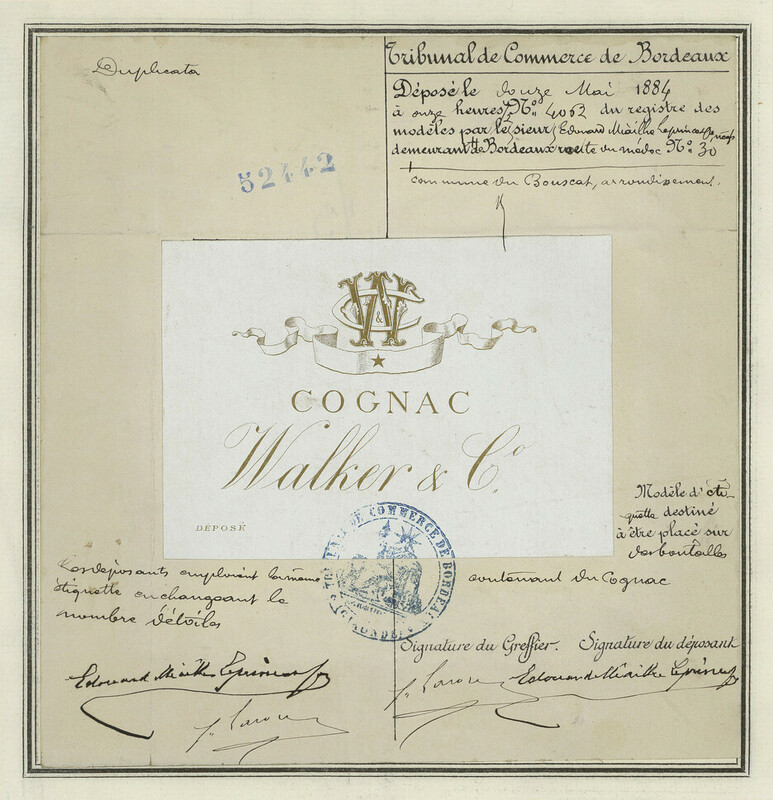 Duplicata
52442
Tribunal de Commerce de Bordeaux
Déposé le douze Mai 1884
à onze heures, No. 4062 du registre des
modèles par le sieur Edouard Miailhe
demeurant à Bordeaux route du médoc No. 30
commune du Bouscat, arrondissement.
W & C
COGNAC
Walker & Co.
DÉPOSÉ
Modèle d'éti-
quette destiné
à être placé sur
des bouteilles
contenant du Cognac
TRIBUNAL DE COMMERCE DE BORDEAUX
(GIRONDE)
Les déposants emploient la même
étiquette en changeant le
nombre d'étoiles
Signature du Greffier. Signature du déposant
Edouard Miailhe
Edouard Miailhe